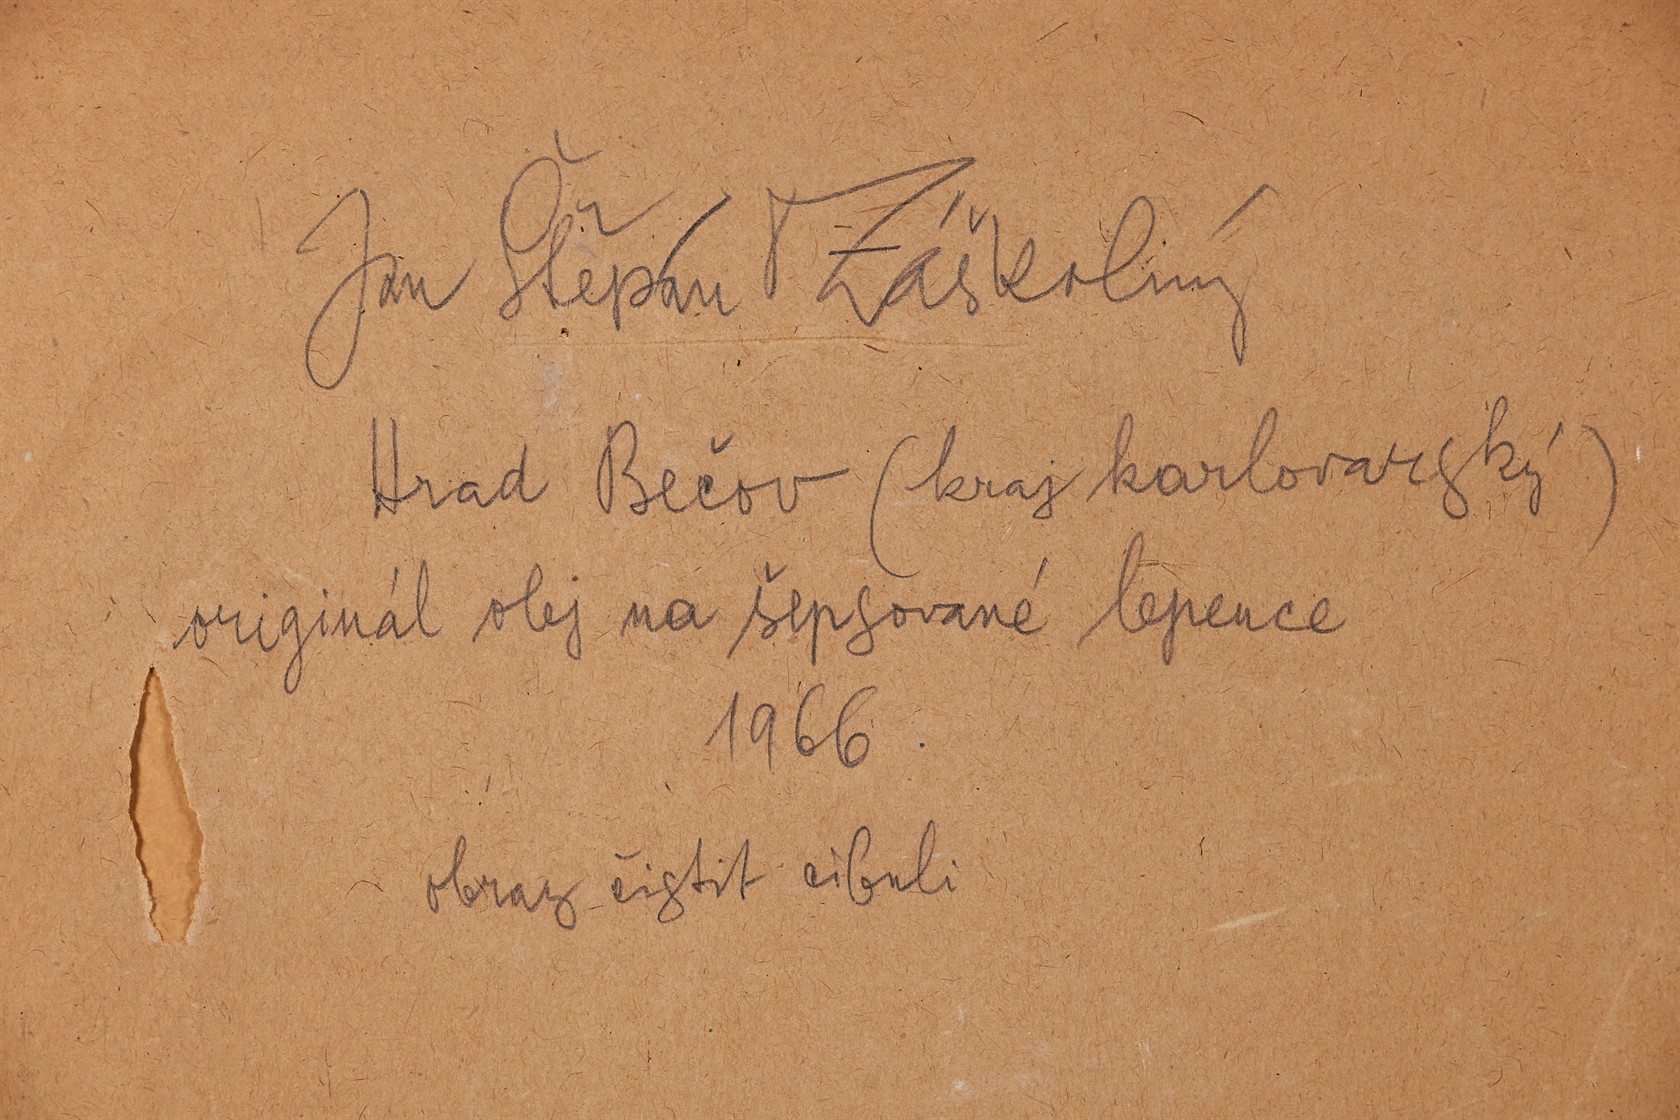 Jan Štěpán Záškolný
Hrad Bečov (kraj karlovarský)
originál olej na šepsované lepence
1966.
obraz čistit cibuli